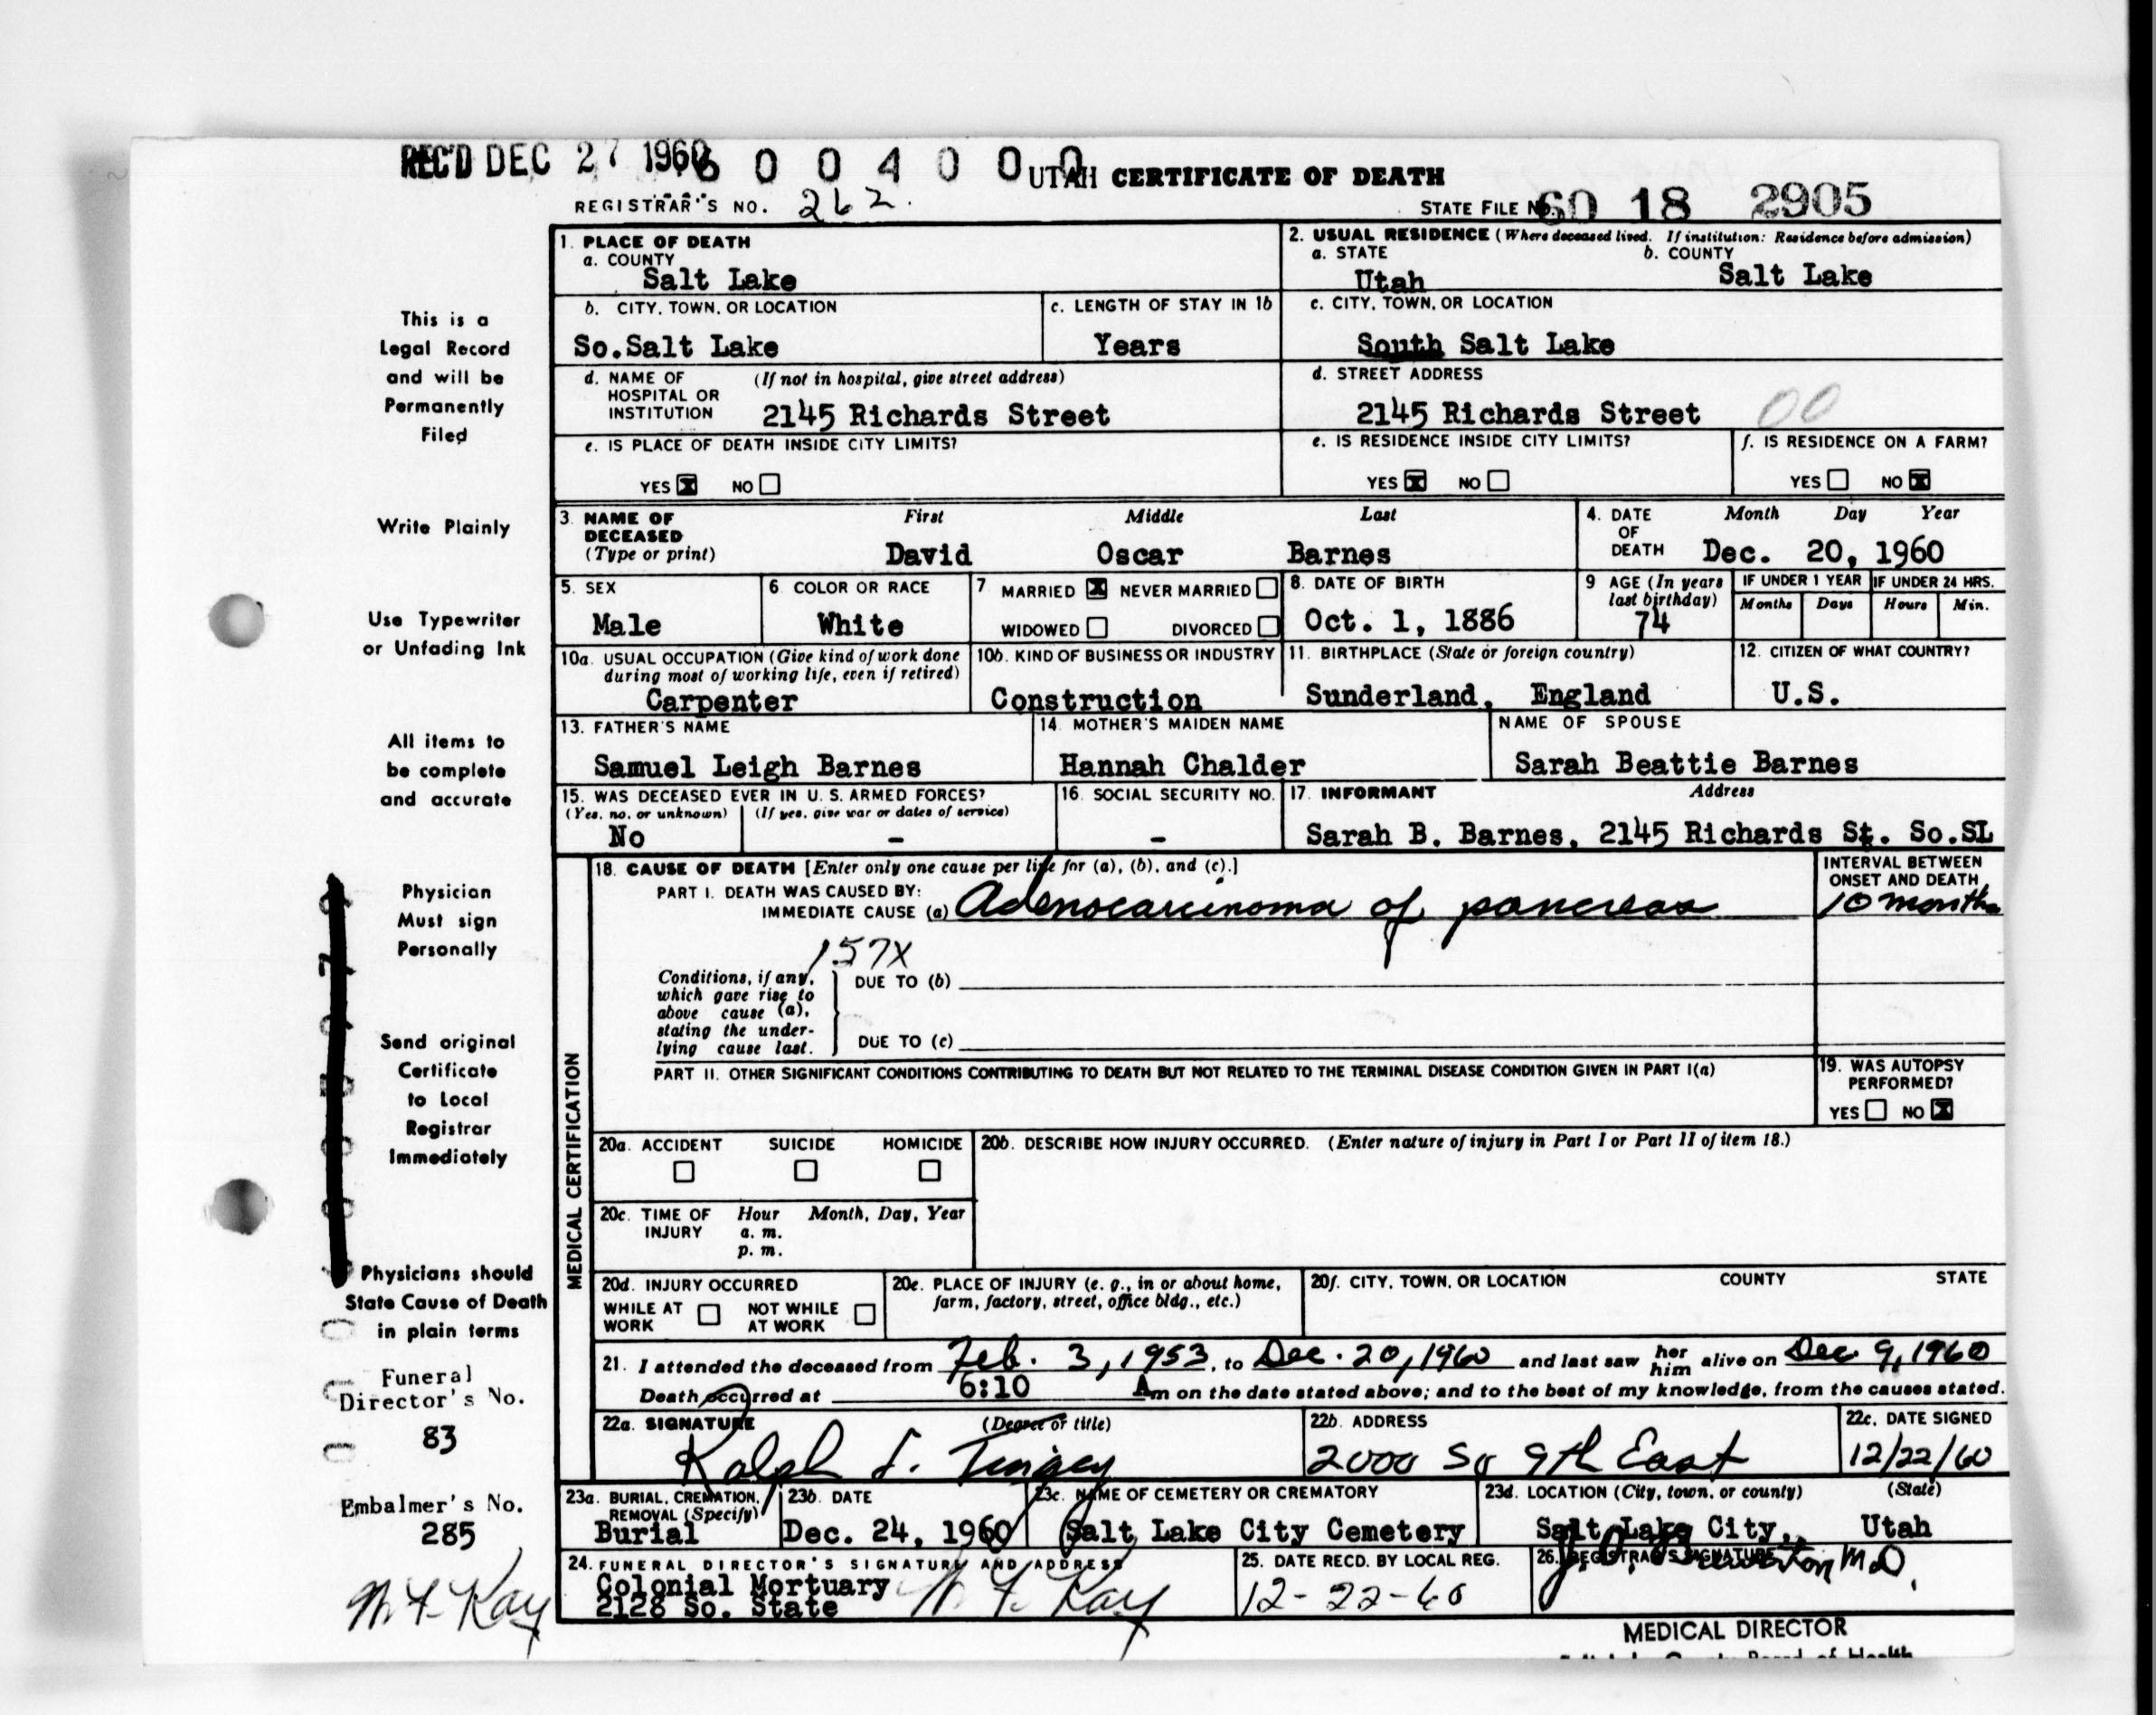 REC'D DEC 27 1960 6 0 0 4 0 0 0 UTAH CERTIFICATE OF DEATH
REGISTRAR'S NO. 262. STATE FILE NO. 60 18 2905
1. PLACE OF DEATH
a. COUNTY
Salt Lake
2. USUAL RESIDENCE (Where deceased lived. If institution: Residence before admission)
a. STATE b. COUNTY
Utah Salt Lake
b. CITY, TOWN, OR LOCATION
So.Salt Lake
c. LENGTH OF STAY IN 1b
Years
c. CITY, TOWN, OR LOCATION
South Salt Lake
d. NAME OF (If not in hospital, give street address)
HOSPITAL OR
INSTITUTION 2145 Richards Street
d. STREET ADDRESS
2145 Richards Street 00
e. IS PLACE OF DEATH INSIDE CITY LIMITS?
YES X NO
e. IS RESIDENCE INSIDE CITY LIMITS?
YES X NO
f. IS RESIDENCE ON A FARM?
YES NO X
3. NAME OF First Middle Last
DECEASED
(Type or print) David Oscar Barnes
4. DATE Month Day Year
OF
DEATH Dec. 20, 1960
5. SEX
Male
6. COLOR OR RACE
White
7 MARRIED X NEVER MARRIED
WIDOWED DIVORCED
8. DATE OF BIRTH
Oct. 1, 1886
9 AGE (In years
last birthday)
74
IF UNDER 1 YEAR IF UNDER 24 HRS.
Months Days Hours Min.
10a. USUAL OCCUPATION (Give kind of work done
during most of working life, even if retired)
Carpenter
10b. KIND OF BUSINESS OR INDUSTRY
Construction
11. BIRTHPLACE (State or foreign country)
Sunderland, England
12. CITIZEN OF WHAT COUNTRY?
U.S.
13. FATHER'S NAME
Samuel Leigh Barnes
14. MOTHER'S MAIDEN NAME
Hannah Chalder
NAME OF SPOUSE
Sarah Beattie Barnes
15. WAS DECEASED EVER IN U. S. ARMED FORCES?
(Yes, no, or unknown) (If yes, give war or dates of service)
No –
16. SOCIAL SECURITY NO.
–
17. INFORMANT Address
Sarah B. Barnes, 2145 Richards St. So.SL
MEDICAL CERTIFICATION
18. CAUSE OF DEATH [Enter only one cause per line for (a), (b), and (c).]
PART I. DEATH WAS CAUSED BY:
IMMEDIATE CAUSE (a) Adenocarcinoma of pancreas
INTERVAL BETWEEN
ONSET AND DEATH
10 months
157X
Conditions, if any,
which gave rise to
above cause (a),
stating the under-
lying cause last.
DUE TO (b)
DUE TO (c)
PART II. OTHER SIGNIFICANT CONDITIONS CONTRIBUTING TO DEATH BUT NOT RELATED TO THE TERMINAL DISEASE CONDITION GIVEN IN PART I(a)
19. WAS AUTOPSY
PERFORMED?
YES NO X
20a. ACCIDENT SUICIDE HOMICIDE
20b. DESCRIBE HOW INJURY OCCURRED. (Enter nature of injury in Part I or Part II of item 18.)
20c. TIME OF Hour Month, Day, Year
INJURY a. m.
p. m.
20d. INJURY OCCURRED
WHILE AT NOT WHILE
WORK AT WORK
20e. PLACE OF INJURY (e. g., in or about home,
farm, factory, street, office bldg., etc.)
20f. CITY, TOWN, OR LOCATION COUNTY STATE
21. I attended the deceased from Feb. 3, 1953, to Dec. 20, 1960 and last saw her him alive on Dec 9, 1960
Death occurred at 6:10 Am on the date stated above; and to the best of my knowledge, from the causes stated.
22a. SIGNATURE (Degree or title)
Ralph
22b. ADDRESS
2000 So 9th East
22c. DATE SIGNED
12/22/60
23a. BURIAL, CREMATION,
REMOVAL (Specify)
Burial
23b. DATE
Dec. 24, 1960
23c. NAME OF CEMETERY OR CREMATORY
Salt Lake City Cemetery
23d. LOCATION (City, town, or county) (State)
Salt Lake City, Utah
24. FUNERAL DIRECTOR'S SIGNATURE AND ADDRESS
Colonial Mortuary
2128 So. State
Kay
25. DATE RECD. BY LOCAL REG.
12-22-60
26. REGISTRAR'S SIGNATURE
M.D.
MEDICAL DIRECTOR
This is a
Legal Record
and will be
Permanently
Filed
Write Plainly
Use Typewriter
or Unfading Ink
All items to
be complete
and accurate
Physician
Must sign
Personally
Send original
Certificate
to Local
Registrar
Immediately
Physicians should
State Cause of Death
in plain terms
Funeral
Director's No.
83
Embalmer's No.
285
Kay